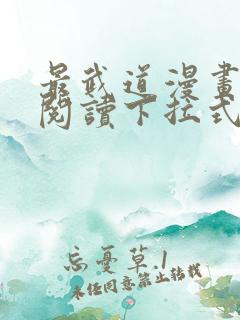 最武道漫畫
閱讀下拉式
忘憂草.1
未经同意禁止转载